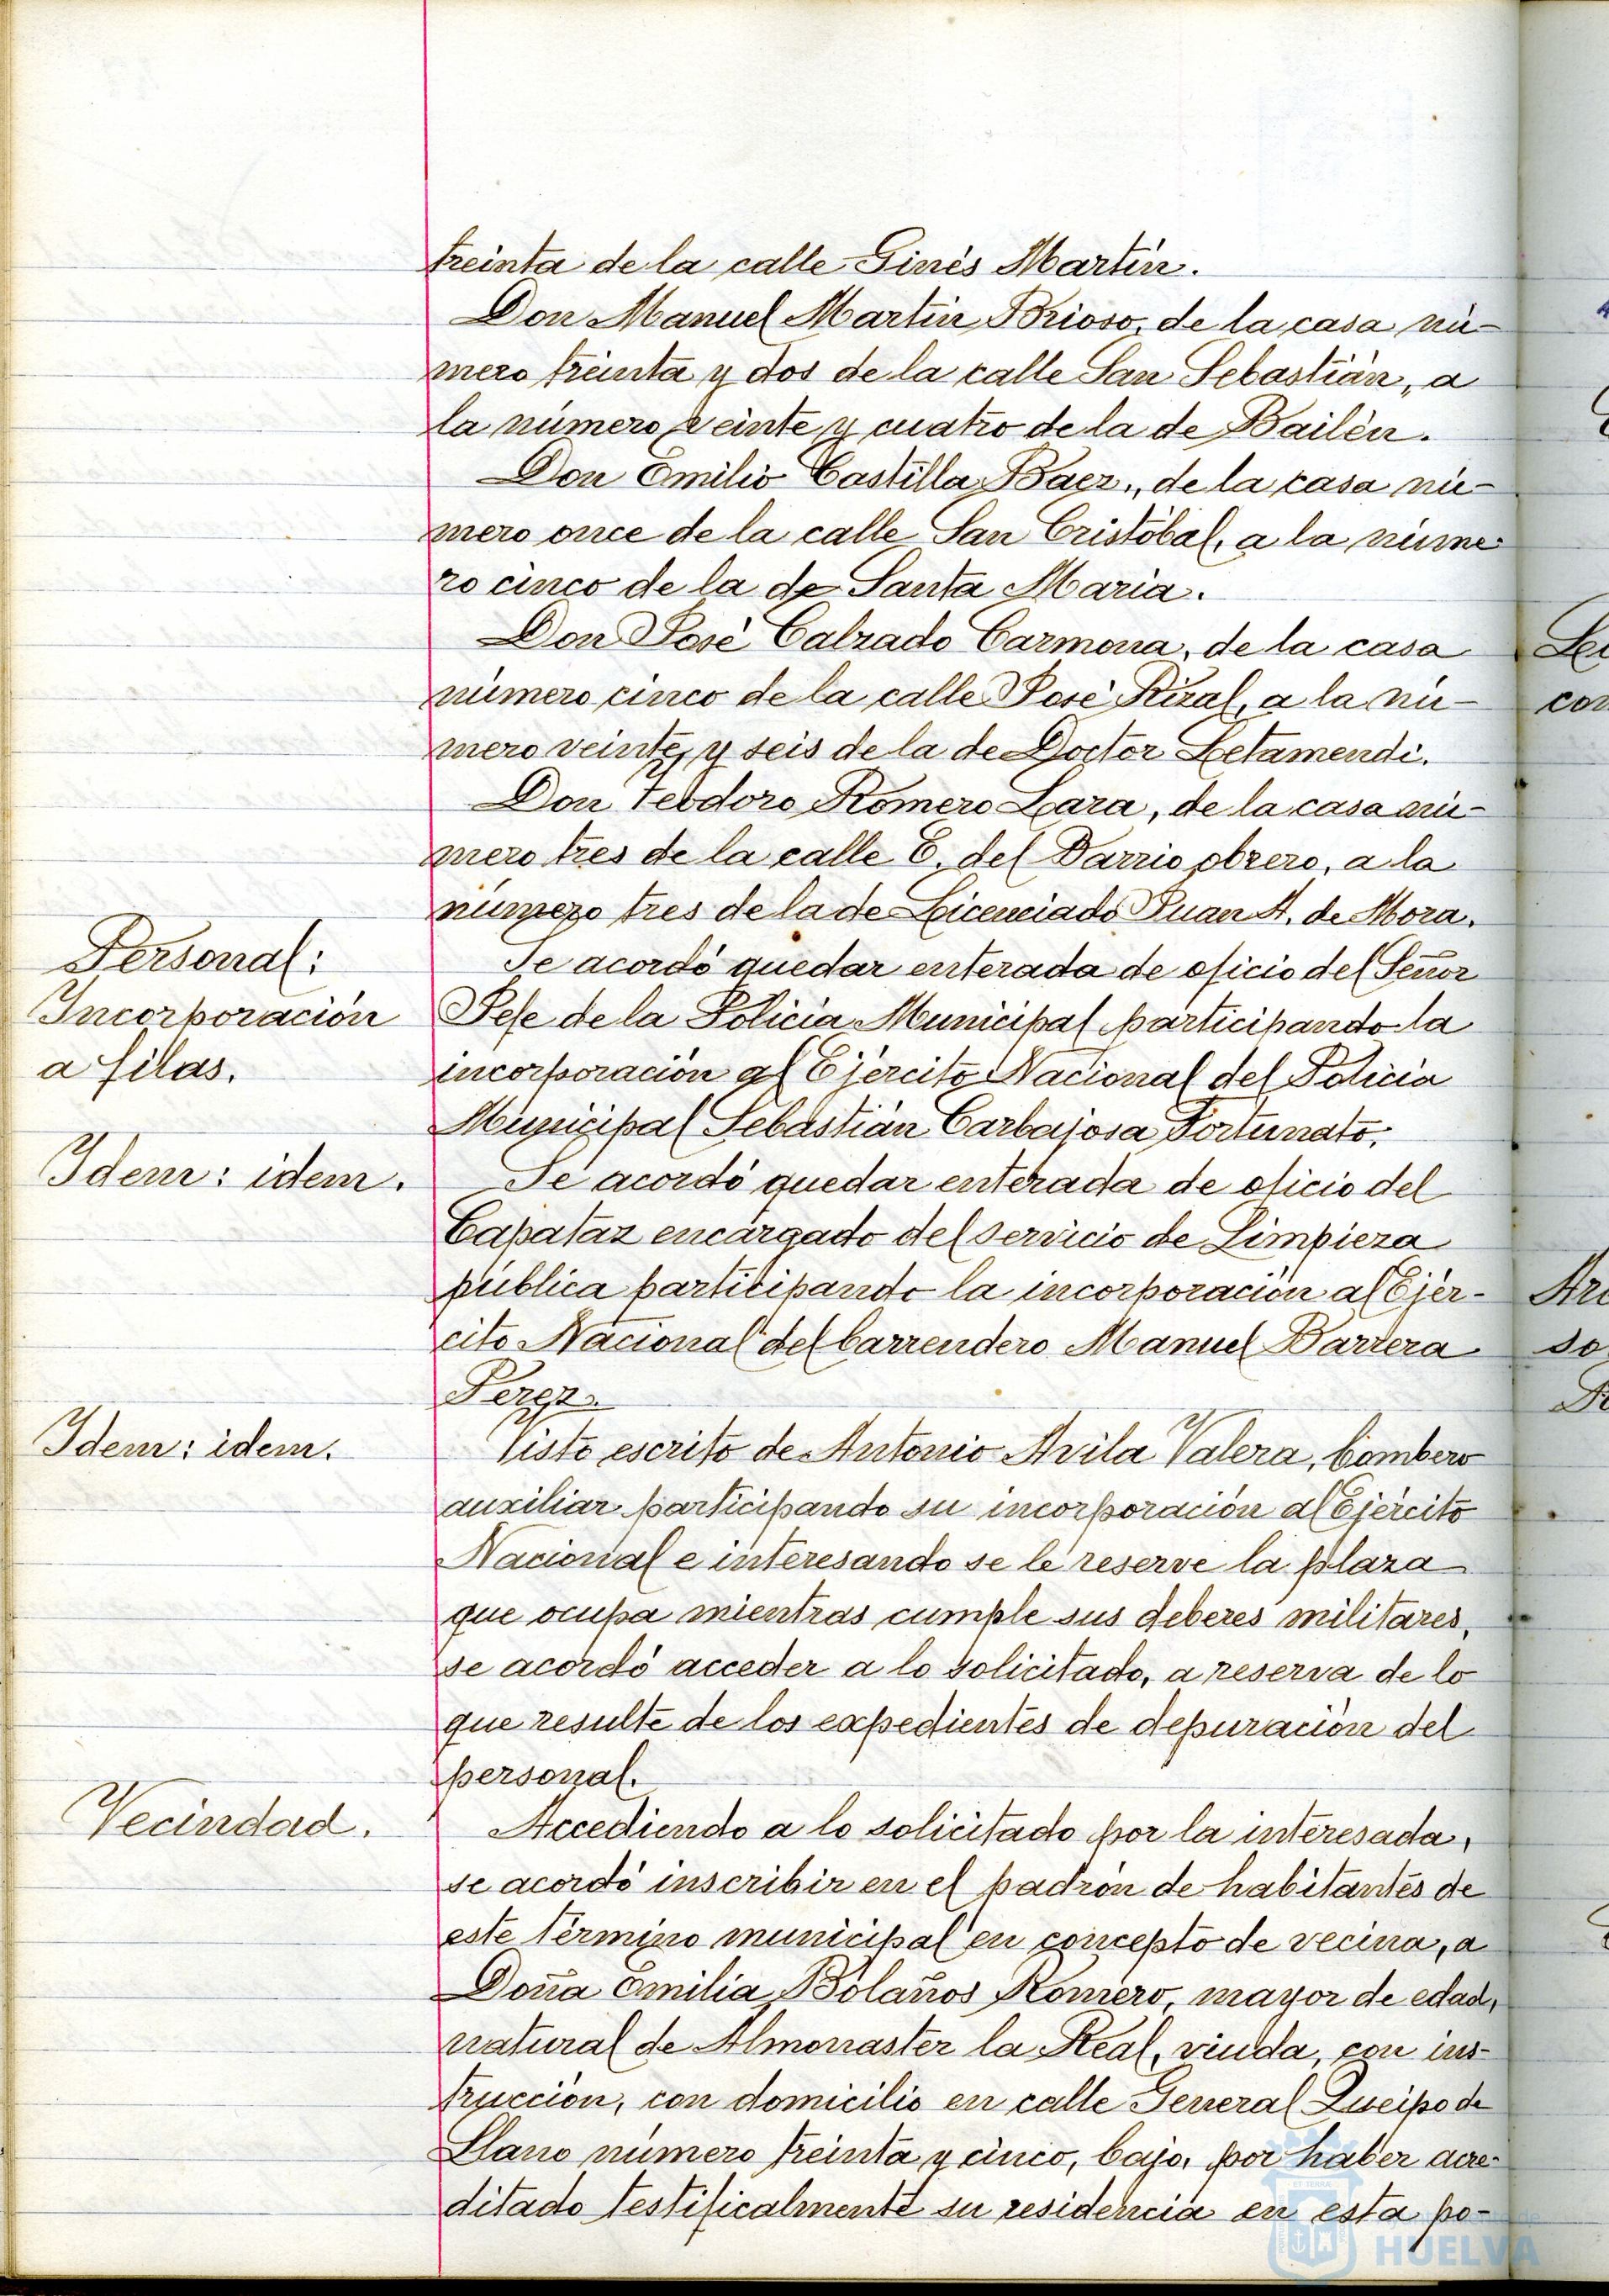 treinta de la calle Ginés Martín.
Don Manuel Martín Brioso, de la casa nú-
mero treinta y dos de la calle San Sebastián, a
la número veinte y cuatro de la de Bailén.
Don Emilio Castilla Baez, de la casa nú-
mero once de la calle San Cristóbal, a la núme-
ro cinco de la de Santa Maria.
Don José Calzado Carmona, de la casa
número cinco de la calle José Rizal, a la nú-
mero veinte y seis de la de Doctor Letamendi.
Don Teodoro Romero Lara, de la casa nú-
mero tres de la calle E. del Barrio obrero, a la
número tres de la de Licenciado Juan A. de Mora.
Personal:
Incorporación
a filas.
Se acordó quedar enterada de oficio del Señor
Jefe de la Policía Municipal participando la
incorporación al Ejército Nacional del Policía
Municipal Sebastián Carbajosa Fortunato.
Idem: idem.
Se acordó quedar enterada de oficio del
Capataz encargado del servicio de Limpieza
pública participando la incorporación al Ejér-
cito Nacional del barrendero Manuel Barrera
Perez.
Idem: idem.
Visto escrito de Antonio Avila Valera, bombero
auxiliar participando su incorporación al Ejército
Nacional e interesando se le reserve la plaza
que ocupa mientras cumple sus deberes militares,
se acordó acceder a lo solicitado, a reserva de lo
que resulte de los expedientes de depuración del
personal.
Vecindad.
Accediendo a lo solicitado por la interesada,
se acordó inscribir en el padrón de habitantes de
este término municipal en concepto de vecina, a
Doña Emilia Bolaños Romero, mayor de edad,
natural de Almonaster la Real, viuda, con ins-
trucción, con domicilio en calle General Queipo de
Llano número treinta y cinco, bajo, por haber acre-
ditado testificalmente su residencia en esta po-
HUELVA